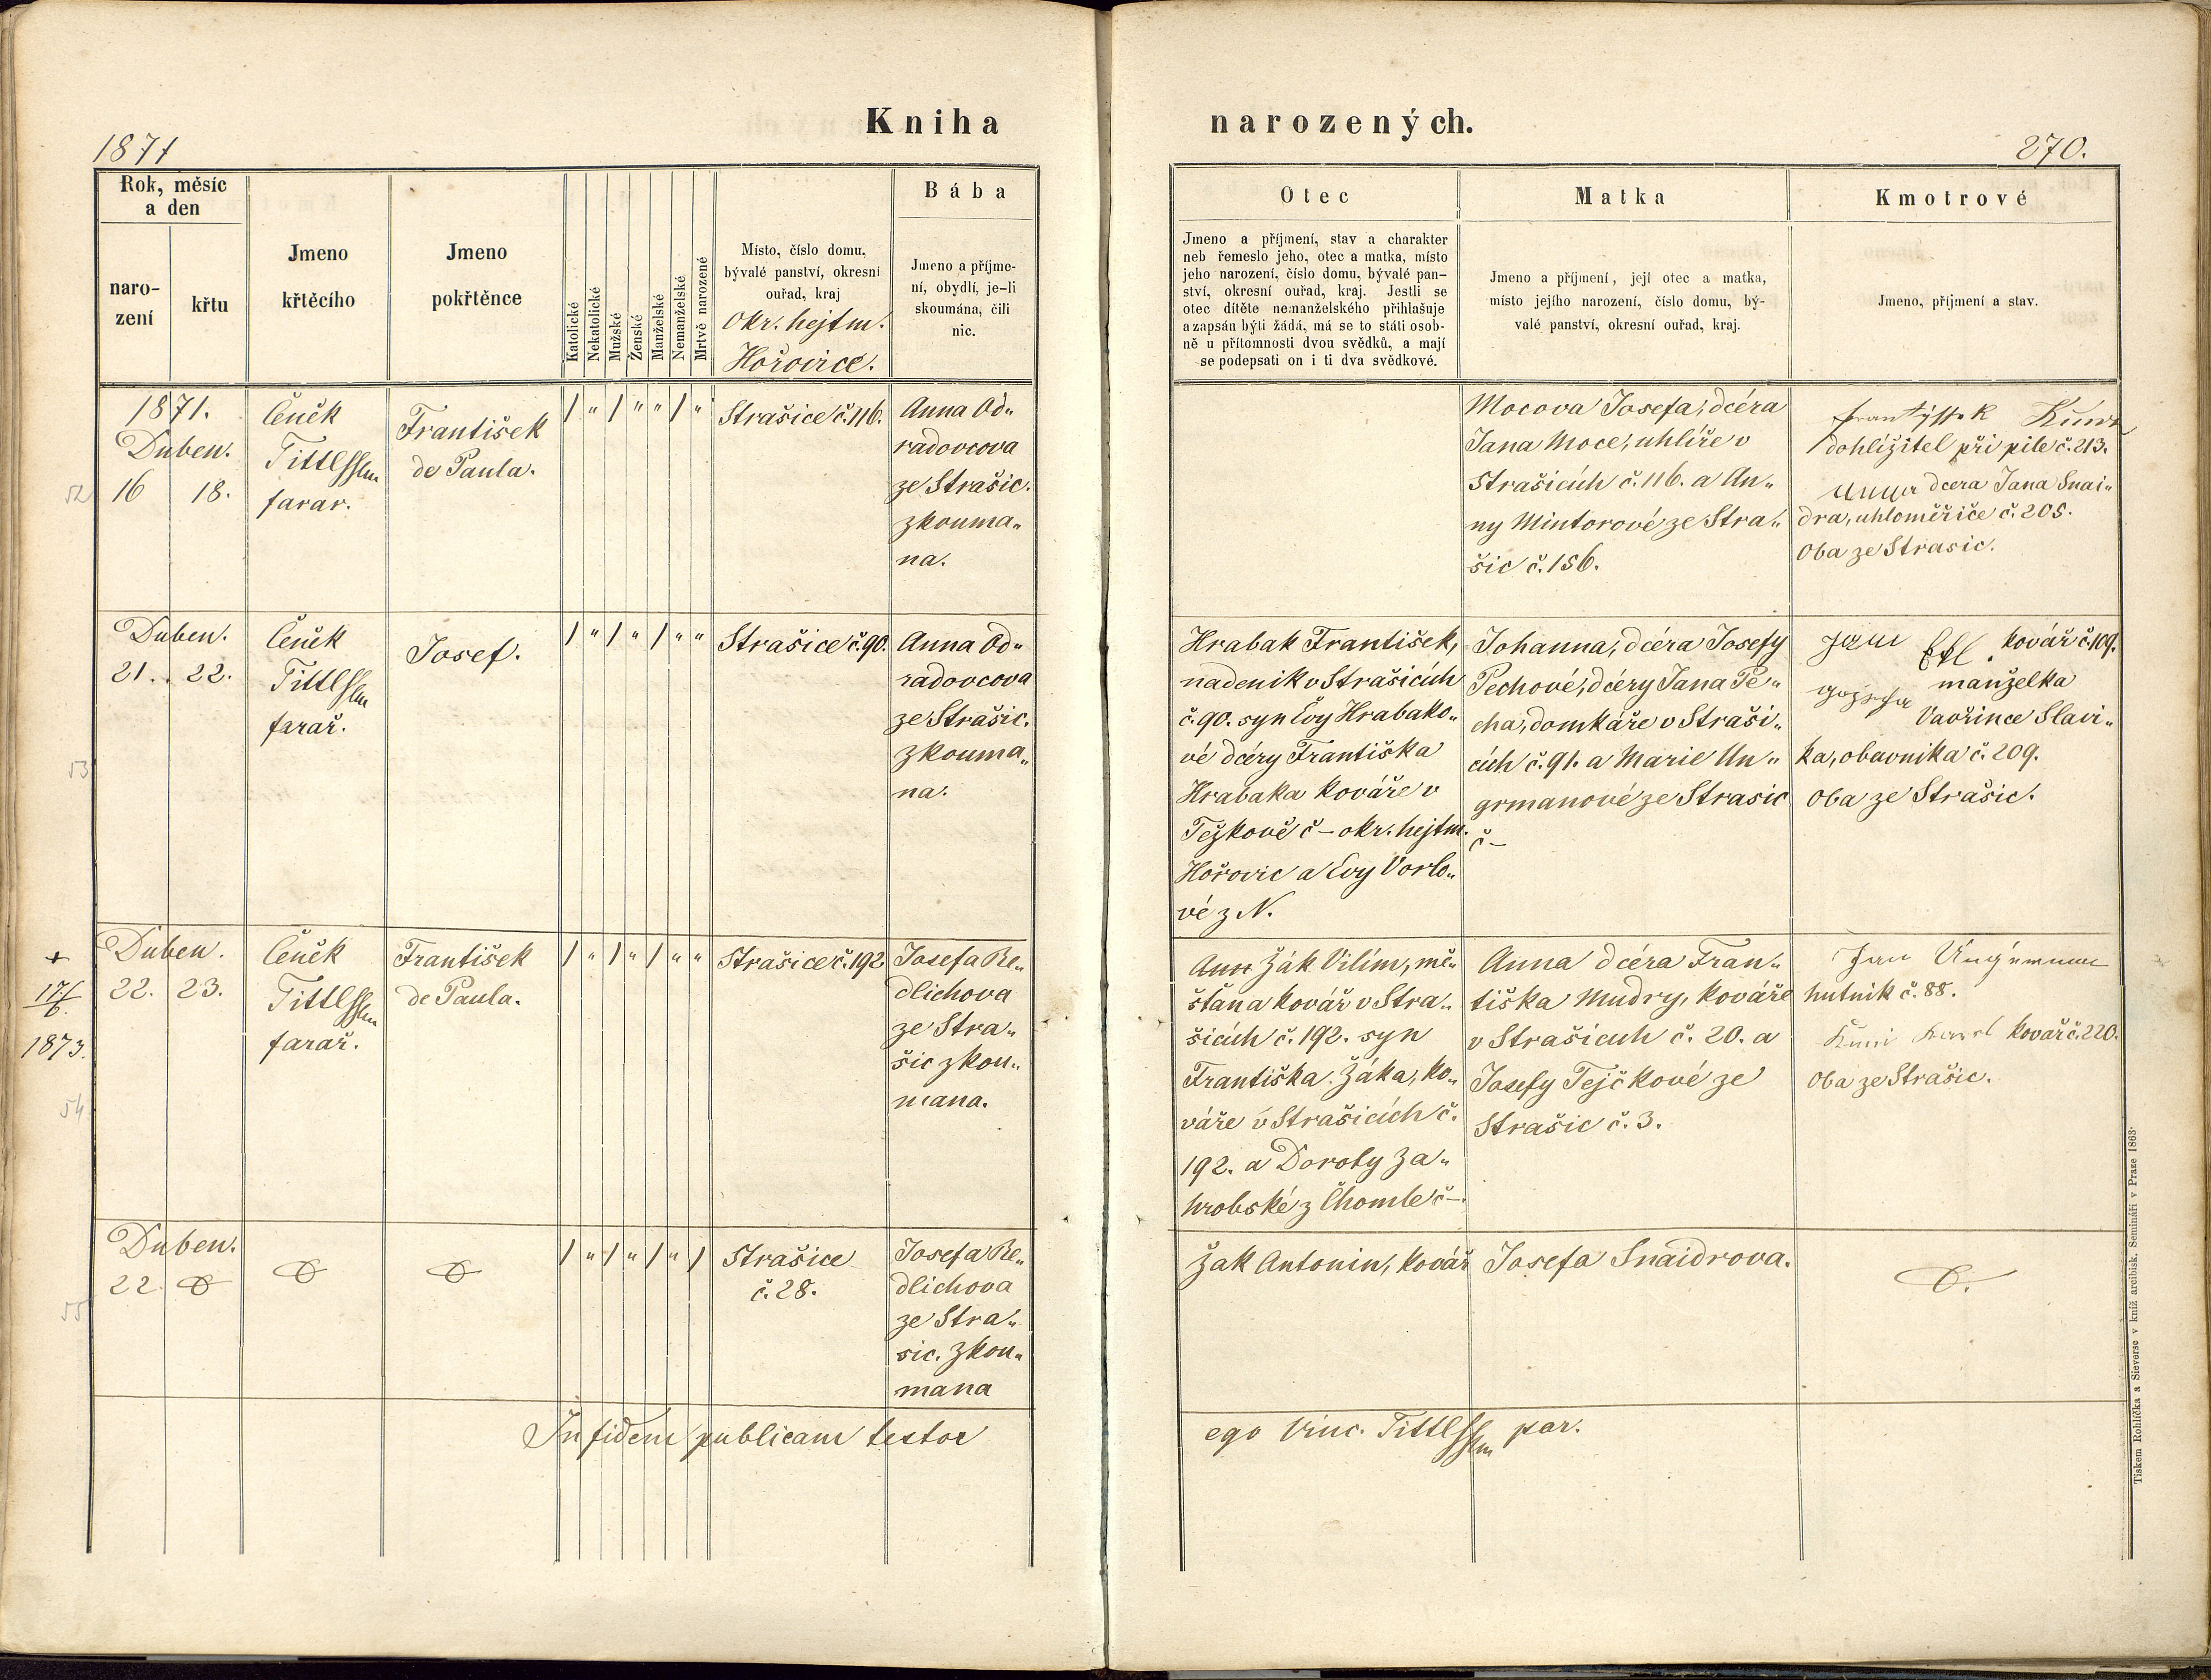 Kniha narozených.
1871
270.
Rok, měsíc a den
narození
křtu
Jmeno křtěcího
Jmeno pokřtěnce
Katolické
Nekatolické
Mužské
Ženské
Manželské
Nemanželské
Mrtvě narozené
Místo, číslo domu,
bývalé panství, okresní
ouřad, kraj
Okr. hejtm.
Hořovice.
Bába
Jmeno a příjme-
ní, obydlí, je-li
skoumána, čili
nic.
Otec
Jmeno a příjmení, stav a charakter
neb řemeslo jeho, otec a matka, místo
jeho narození, číslo domu, bývalé pan-
ství, okresní ouřad, kraj. Jestli se
otec dítěte nemanželského přihlašuje
a zapsán býti žádá, má se to státi osob-
ně u přítomnosti dvou svědků, a mají
se podepsati on i ti dva svědkové.
Matka
Jmeno a příjmení, její otec a matka,
místo jejího narození, číslo domu, bý-
valé panství, okresní ouřad, kraj.
Kmotrové
Jmeno, příjmení a stav.
52
1871.
Duben.
16 18.
Čeněk
Tittlssm
farar.
František
de Paula.
/ " / " " / "
Strašice č. 116.
Anna Od„
radovcova
ze Strašic.
zkouma„
na.
Mocova Josefa, dcéra
Jana Moce, uhlíře v
Strašicích č. 116. a An„
ny Mintorové ze Stra„
šic č. 156.
Frantyssek
dohlížitel při pile č. 213.
dcera Jana Snai„
dra, uhloměřiče č. 205.
Oba ze Strasic.
53
Duben.
21. 22.
Čeněk
Tittlssm
farař.
Josef.
/ " / " / " "
Strašice č. 90.
Anna Od„
radovcova
ze Strašic.
zkouma„
na.
Hrabak František,
nadenik v Strašicích
č. 90. syn Evy Hrabako„
vé dcéry Františka
Hrabaka kováře v
Težkově č – okr. hejtm.
Hořovic a Evy Vorlo„
vé z N.
Johanna, dcéra Josefy
Pechové, dcéry Jana Pe„
cha, domkáře v Straši„
cích č. 91. a Marie Un„
grmanové ze Strasic
č –
Jan kovář č. 109.
manželka
Vavřince Slavi„
ka, obavnika č. 209.
Oba ze Strašic.
+
17/6.
1873.
54
Duben.
22. 23.
Čeněk
Tittlssm
farař.
František
de Paula.
/ " / " / " "
Strašice č. 192
Josefa Re„
dlichova
ze Stra„
šic zkou„
mana.
Ann Žák Vilím, mě„
šťana kovář v Stra„
šicích č. 192. syn
Františka Žáka, ko„
váře v Strašicích č.
192. a Doroty Za„
hrobské z Chomle č –.
Anna dcéra Fran„
tiška Mudry, kováře
v Strašicuh č. 20. a
Josefy Tejčkové ze
Strašic č. 3.
Jan Ungrmann
hutnik č. 88.
Karel kovař č. 220.
Oba ze Strašic.
55
Duben.
22.
/ " / " / " /
Strašice
č. 28.
Josefa Re„
dlichova
ze Stra„
sic. zkou„
mana
Žak Antonin, kovář
Josefa Snaidrova.
In fidem publicam testor
ego Vinc. Tittlssm par.
Tiskem Rohlíčka a Sieverse v kníž. arcibisk. Semináři v Praze 1863.